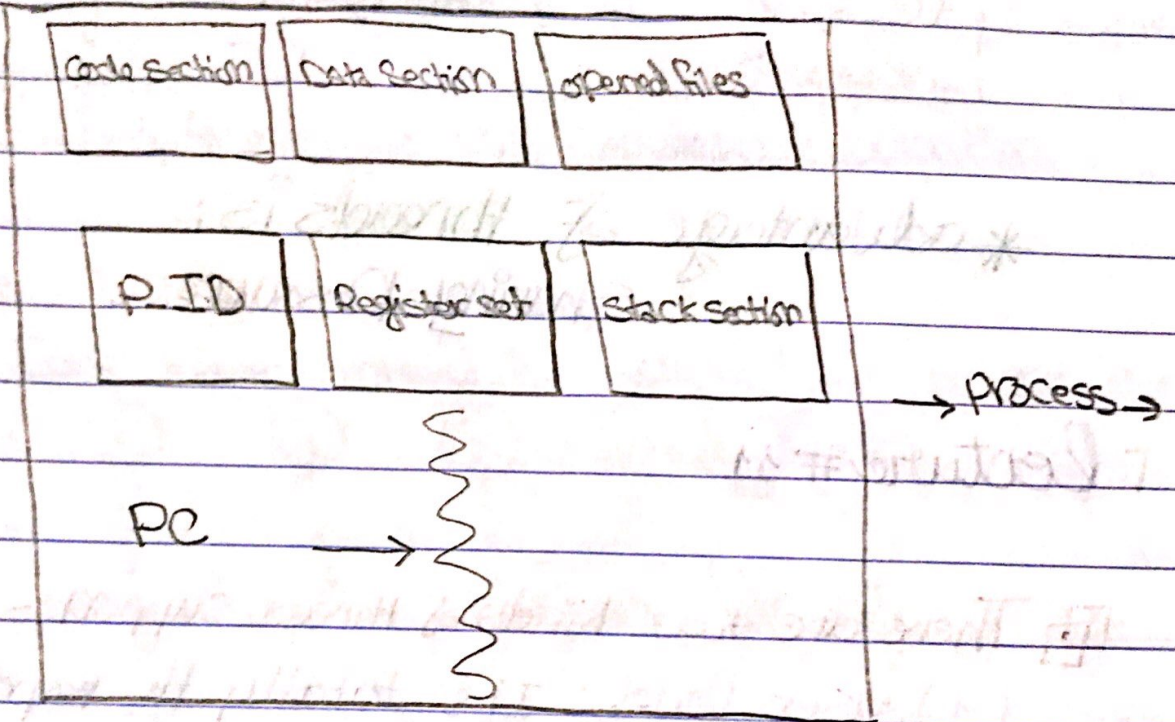 Code section Data Section opened files
P_ID Register set Stack section
→ process →
PC →